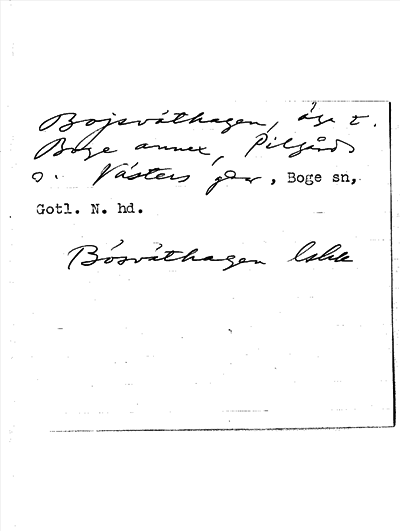 Bojsväthagen, äga t.
Boge annex, Pilgårds
o. Västers gdar, Boge sn,
Gotl. N. hd.
Bósväthagen lskk